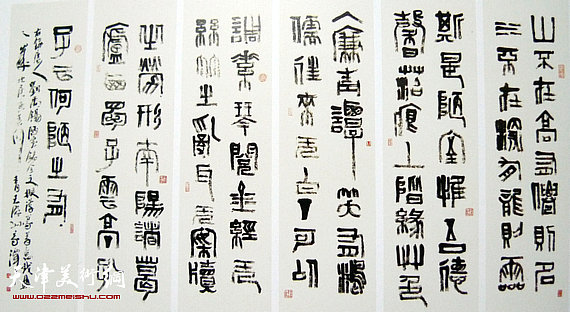 山不在高有僊則名
水不在深有龍則靈
斯是陋室惟吾德
馨苔痕上階綠草色
入簾青譚笑有鴻
儒往來無白丁可以
調素琴閱金經無
絲竹之亂耳無案牘
之勞形南陽諸葛
廬西蜀子雲亭孔
子云何陋之有
劉禹錫陋室銘全文
天津美术网
www.022meishu.com